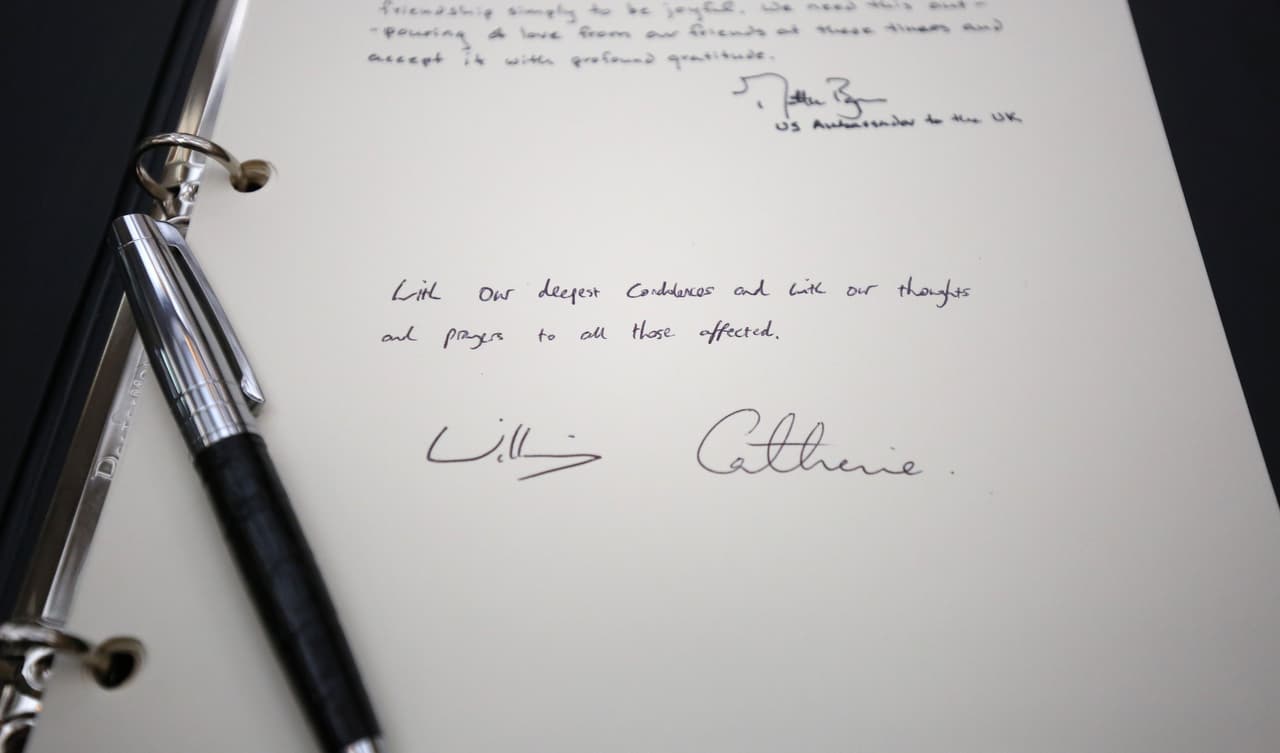 friendship simply to be joyful. We need this out-
-pouring of love from our friends at these times and
accept it with profound gratitude.
US Ambassador to the UK
With our deepest condolences and with our thoughts
and prayers to all those affected.
William Catherine.